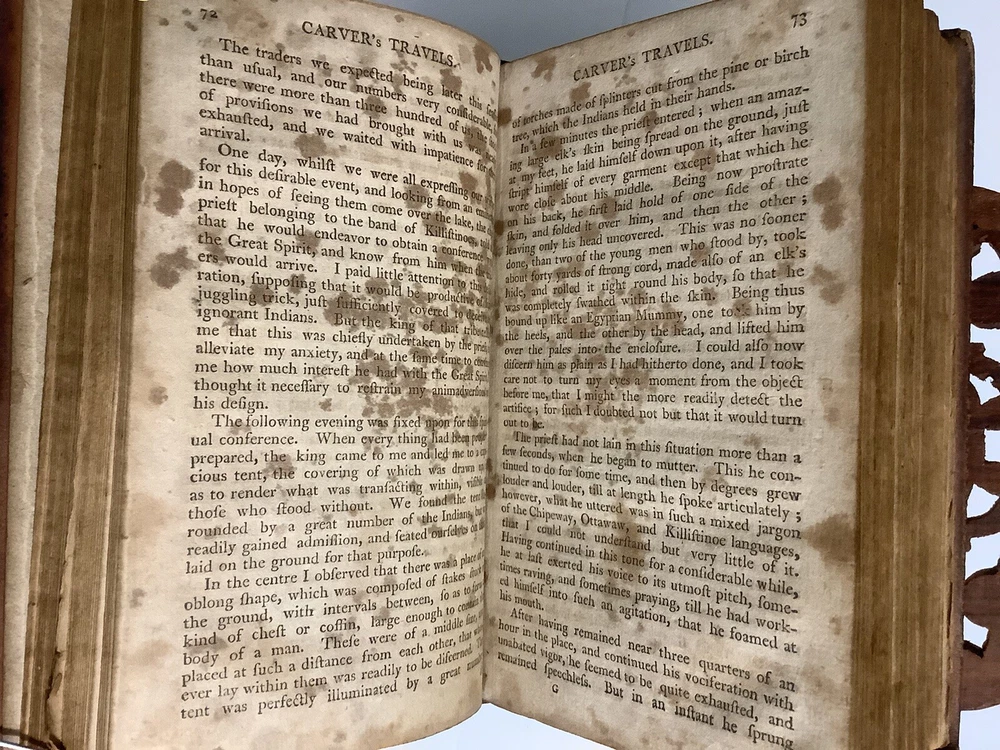 72
CARVER's TRAVELS.
The traders we expected being later this
than uſual, and our numbers very
there were more than three hundred of us, the
of proviſions we had brought with us was
exhauſted, and we waited with impatience for
arrival.
One day, whilſt we were all expreſſing our
for this deſirable event, and looking from an
in hopes of ſeeing them come over the lake, the
prieſt belonging to the band of Killiſtinoes,
that he would endeavor to obtain a conference
the Great Spirit, and know from him when the
ers would arrive. I paid little attention to this
ration, ſuppoſing that it would be productive of
juggling trick, juſt ſufficiently covered to
ignorant Indians. But the king of that tribe
me that this was chiefly undertaken by the prieſt
alleviate my anxiety, and at the ſame time to
me how much intereſt he had with the Great Spirit
thought it neceſſary to reſtrain my
his deſign.
The following evening was fixed upon for this
ual conference. When every thing had been
prepared, the king came to me and led me to a
cious tent, the covering of which was drawn
as to render what was tranſacting within,
thoſe who ſtood without. We found the tent
rounded by a great number of the Indians, but
readily gained admiſſion, and ſeated ourſelves on
laid on the ground for that purpoſe.
In the centre I obſerved that there was a place of
oblong ſhape, which was compoſed of ſtakes
the ground, with intervals between, ſo as to form
kind of cheſt or coffin, large enough to contain
body of a man. Theſe were of a middle ſize,
placed at ſuch a diſtance from each other, that
ever lay within them was readily to be diſcerned.
tent was perfectly illuminated by a great
73
CARVER's TRAVELS.
of torches made of ſplinters cut from the pine or birch
tree, which the Indians held in their hands.
In a few minutes the prieſt entered; when an amaz-
ing large elk's ſkin being ſpread on the ground, juſt
at my feet, he laid himſelf down upon it, after having
ſtript himſelf of every garment except that which he
wore cloſe about his middle. Being now proſtrate
on his back, he firſt laid hold of one ſide of the
ſkin, and folded it over him, and then the other;
leaving only his head uncovered. This was no ſooner
done, than two of the young men who ſtood by, took
about forty yards of ſtrong cord, made alſo of an elk's
hide, and rolled it tight round his body, ſo that he
was completely ſwathed within the ſkin. Being thus
bound up like an Egyptian Mummy, one took him by
the heels, and the other by the head, and lifted him
over the pales into the encloſure. I could alſo now
diſcern him as plain as I had hitherto done, and I took
care not to turn my eyes a moment from the object
before me, that I might the more readily detect the
artifice; for ſuch I doubted not but that it would turn
out to be.
The prieſt had not lain in this ſituation more than a
few ſeconds, when he began to mutter. This he con-
tinued to do for ſome time, and then by degrees grew
louder and louder, till at length he ſpoke articulately;
however, what he uttered was in ſuch a mixed jargon
of the Chipeway, Ottawaw, and Killiſtinoe languages,
that I could not underſtand but very little of it.
Having continued in this tone for a conſiderable while,
he at laſt exerted his voice to its utmoſt pitch, ſome-
times raving, and ſometimes praying, till he had work-
ed himſelf into ſuch an agitation, that he foamed at
his mouth.
After having remained near three quarters of an
hour in the place, and continued his vociferation with
unabated vigor, he ſeemed to be quite exhauſted, and
remained ſpeechleſs. But in an inſtant he ſprung
G